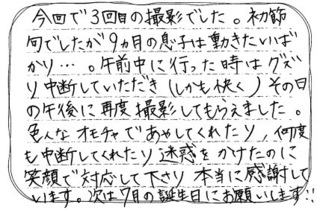 今回で3回目の撮影でした。初節
句でしたが9ヵ月の息子は動きたいば
かり…。午前中に行った時はグズ
り中断していただき(しかも快く)その日
の午後に再度撮影してもらえました。
色んなオモチャであやしてくれたり、何度
も中断してくれたり迷惑をかけたのに
笑顔で対応して下さり本当に感謝して
います。次は7月の誕生日にお願いします!!